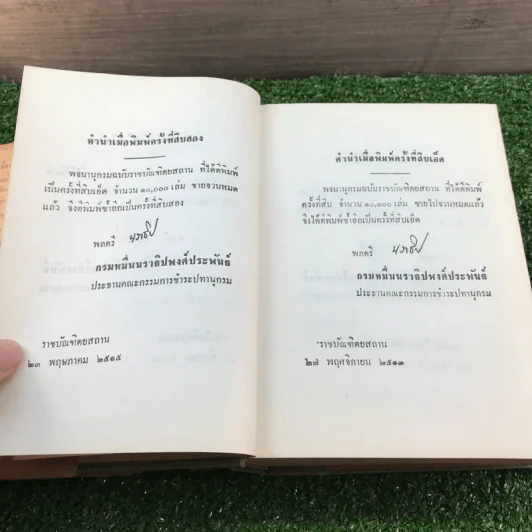 คำนำเมื่อพิมพ์ครั้งที่สิบสอง
พจนานุกรมฉบับราชบัณฑิตยสถาน ที่ได้ตีพิมพ์
เป็นครั้งที่สิบเอ็ด จำนวน ๑๐,๐๐๐ เล่ม ขายจวนหมด
แล้ว จึงตีพิมพ์ซ้ำอีกเป็นครั้งที่สิบสอง
พลตรี นราธิป
กรมหมื่นนราธิปพงศ์ประพันธ์
ประธานคณะกรรมการชำระปทานุกรม
ราชบัณฑิตยสถาน
๒๓ พฤษภาคม ๒๕๑๔
คำนำเมื่อพิมพ์ครั้งที่สิบเอ็ด
พจนานุกรมฉบับราชบัณฑิตยสถาน ที่ได้ตีพิมพ์
ครั้งที่สิบ จำนวน ๑๐,๐๐๐ เล่ม ขายไปจวนหมดแล้ว
จึงได้ตีพิมพ์ซ้ำอีกเป็นครั้งที่สิบเอ็ด
พลตรี นราธิป
กรมหมื่นนราธิปพงศ์ประพันธ์
ประธานคณะกรรมการชำระปทานุกรม
ราชบัณฑิตยสถาน
๒๗ พฤศจิกายน ๒๕๑๓